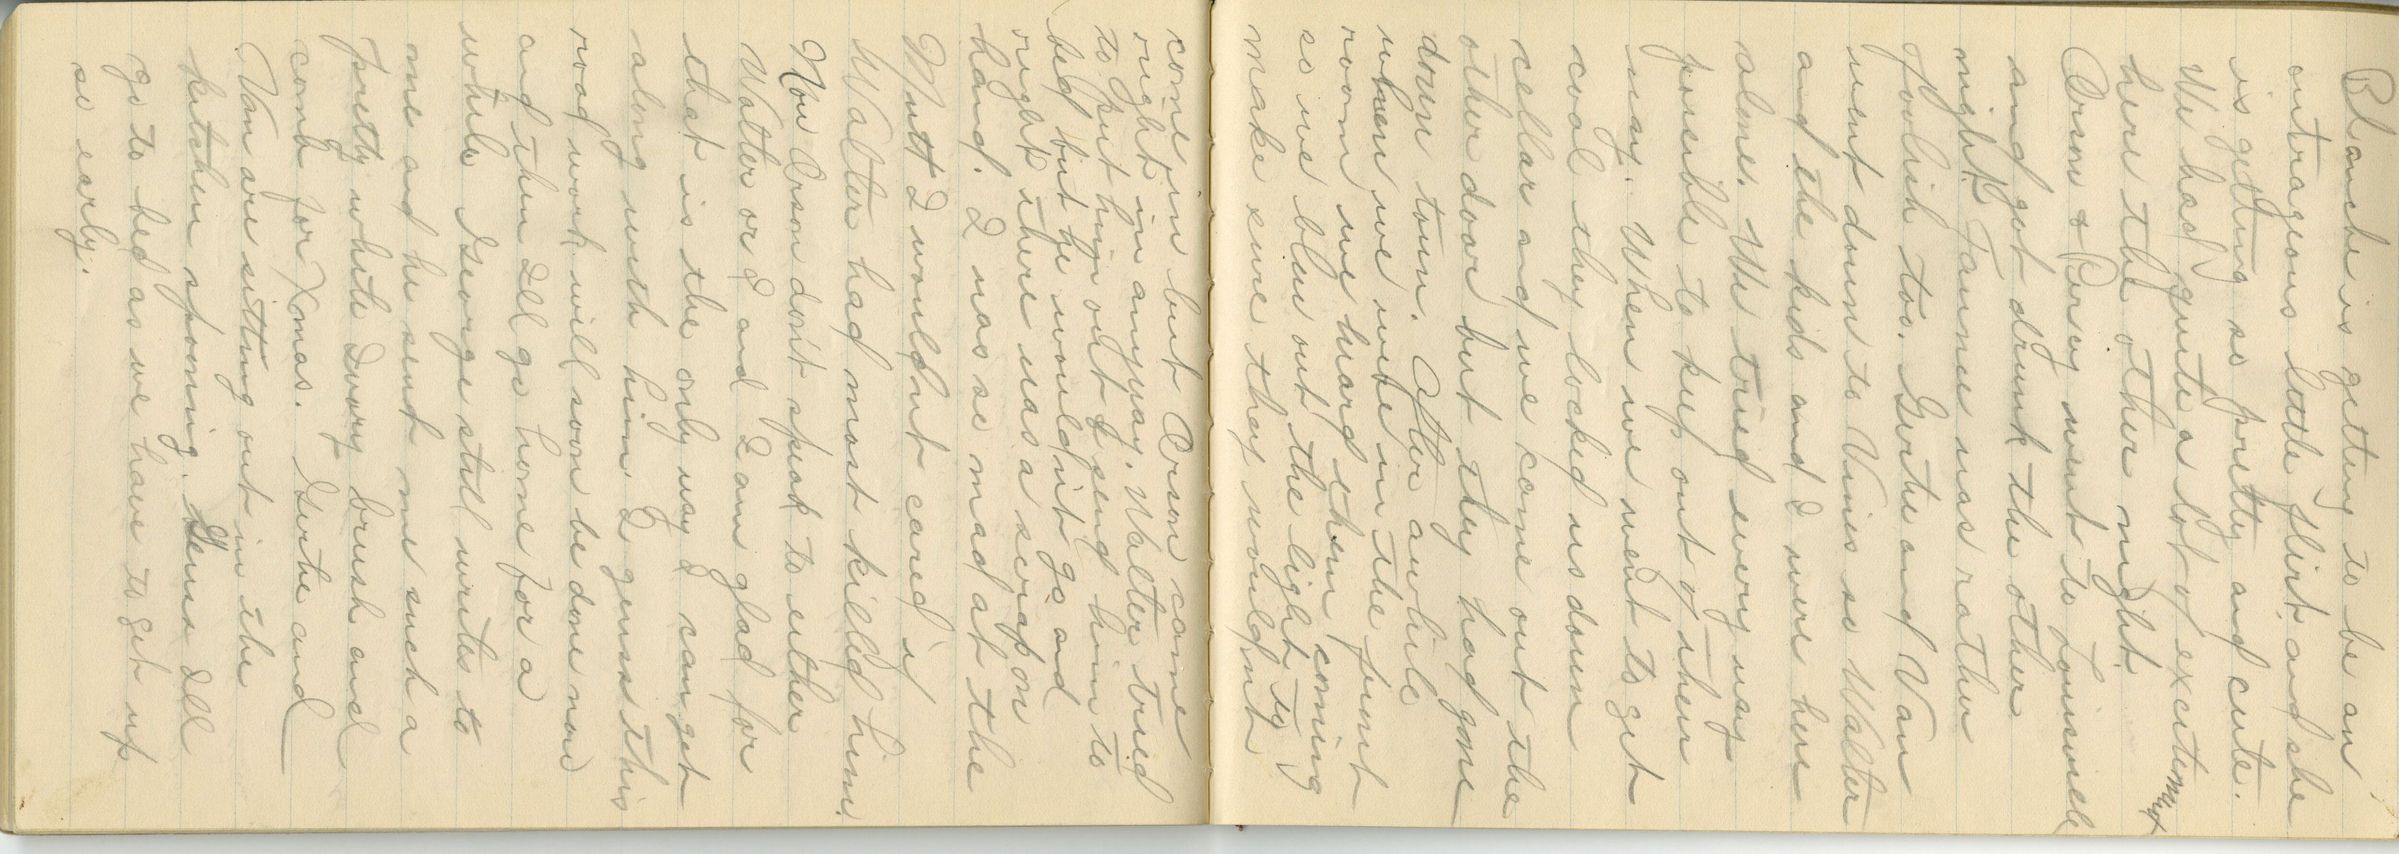 Blanche is getting to be an
outrageous little flirt, and she
is getting so pretty and cute.
We had quite a lot of excitement
here the other night.
Orson & Percy went to
and got drunk the other
night. Fannie was rather
foolish too. Gertie and Van
went down to Vinies so Walter
and the kids and I were here
alone. We tried every way
possible to keep out of their
way. When we went to get
coal they locked us down
cellar and we come out the
other door but they had gone
down town. After awhile
when we were in the front
room we heard them coming
so we blew out the light to
make sure they wouldnt
come in but Orson came
right in anyway. Walter tried
to put him out & send him to
bed but he wouldn't go and
right there was a scrap on
hand. I was so mad at the
Mutt I wouldnt cared if
Walter had most killed him.
Now Orson don't speak to either
Walter or I and I am glad for
that is the only way I can get
along with him. I guess this
road work will soon be done now
and then Ill go home for a
while. George still writes to
me and he sent me such a
pretty white Ivory brush and
comb for Xmas. Gertie and
Van are sitting out in the
kitchen spooning. Guess Ill
go to bed as we have to get up
so early.